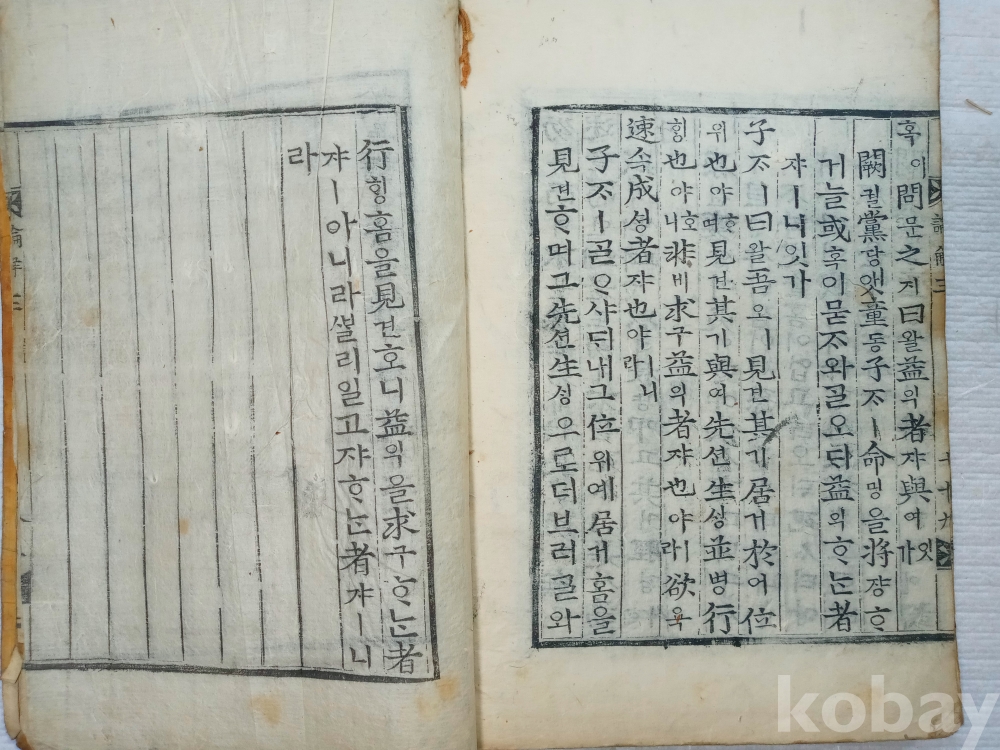 혹이問문之지曰왈益익者쟈與여ㅣ잇가
闕궐黨당앳童동子ᄌᆞㅣ命명을將쟝ᄒᆞ
거늘或혹이묻ᄌᆞ와ᄀᆞᆯ오ᄃᆡ益익ᄒᆞᄂᆞᆫ者
쟈ㅣ니잇가
子ᄌᆞㅣ曰왈吾오ㅣ見견其기居거於어位
위也야ᄒᆞ며見견其기與여先션生ᄉᆡᆼ並병行
ᄒᆡᆼ也야호니非비求구益익者쟈也야ㅣ라欲욕
速속成셩者쟈也야ㅣ니라
子ᄌᆞㅣᄀᆞᆯᄋᆞ샤ᄃᆡ내그位위예居거홈을
見견ᄒᆞ며그先션生ᄉᆡᆼ으로더브러ᄀᆞᆯ와
行ᄒᆡᆼ홈을見견호니益익을求구ᄒᆞᄂᆞᆫ者
쟈ㅣ아니라ᄲᆞᆯ리일고쟈ᄒᆞᄂᆞᆫ者쟈ㅣ니
라
kobay